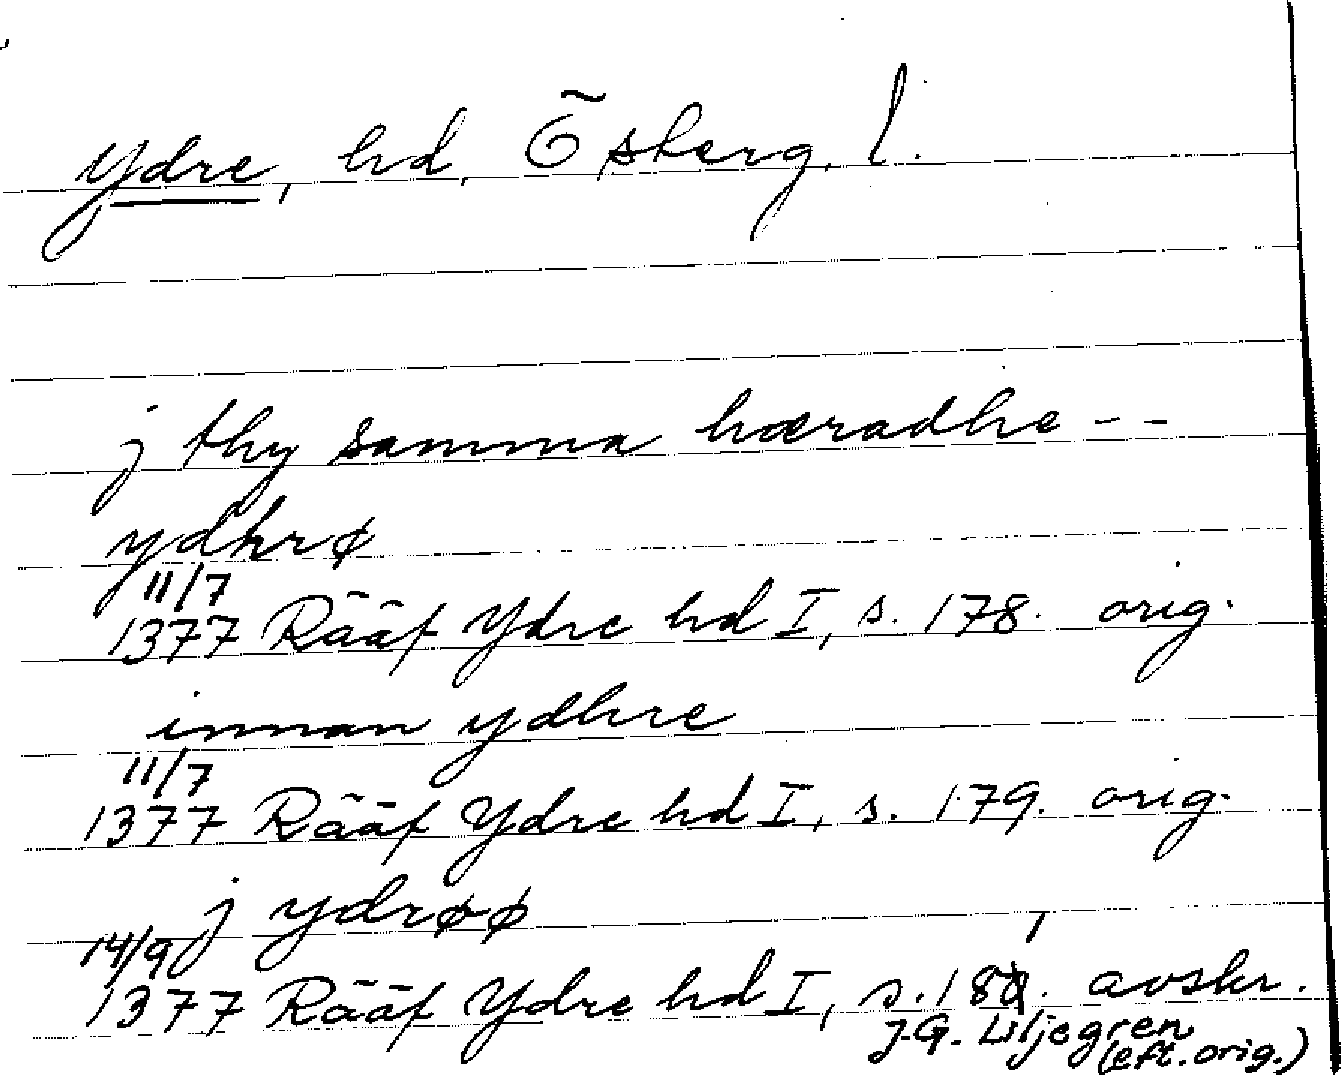 Ydre, hd, Ö̃sberg, l.
j thy samma hæradhe - -
ydhrø
11/7
1377 Rääf Ydre hd I, s. 178. orig.
innan ydhre
11/7
1377 Rääf Ydre hd I, s. 179. orig.
j ydrøø
14/9
1377 Rääf Ydre hd I, s. 181. avskr.
J.G. Liljegren
(eft. orig.)